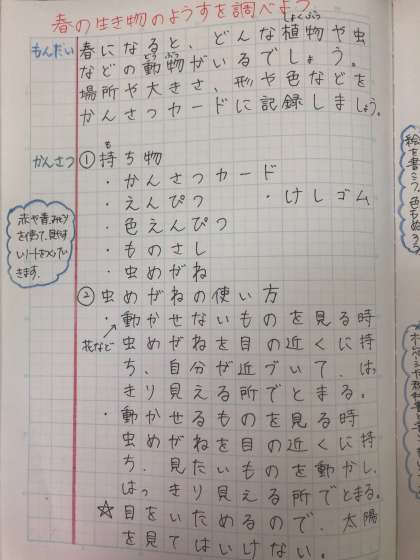 春の生き物のようすを調べよう
もんだい
春になると、どんな植物や虫
しょくぶつ
などの動物がいるでしょう。
どうぶつ
場所や大きさ、形や色などを
かんさつカードに記録しましょう。
かんさつ
①持ち物
も
・かんさつカード
・えんぴつ ・けしゴム
・色えんぴつ
・ものさし
・虫めがね
赤や青、みどり
を使って、見やす
いノートをつくってい
きます。
②虫めがねの使い方
・動かせないものを見る時
花など
虫めがねを目の近くに持
ち、自分が近づいて、はっ
きり見える所でとまる。
・動かせるものを見る時
虫めがねを目の近くに持
ち、見たいものを動かし、
はっきり見える所でとまる。
☆目をいためるので、太陽
を見てはいけない。